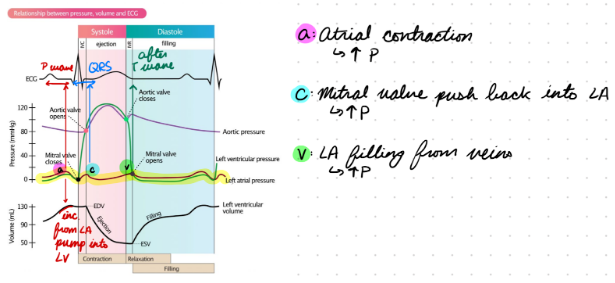 Relationship between pressure, volume and ECG
Systole
Diastole
IVC
ejection
IVR
filling
after
T wave
P wave
QRS
ECG
Aortic valve
closes
Aortic valve
opens
120
80
40
0
Pressure (mmHg)
Aortic pressure
Mitral valve
closes
Mitral valve
opens
a
c
v
Left ventricular pressure
Left atrial pressure
130
90
50
Volume (mL)
EDV
Ejection
ESV
Filling
Left ventricular
volume
inc.
from LA
pump into
LV
Contraction
Relaxation
Filling
a: Atrial contraction
↳ ↑ P
C: Mitral value push back into LA
↳ ↑ P
V: LA filling from veins
↳ ↑ P